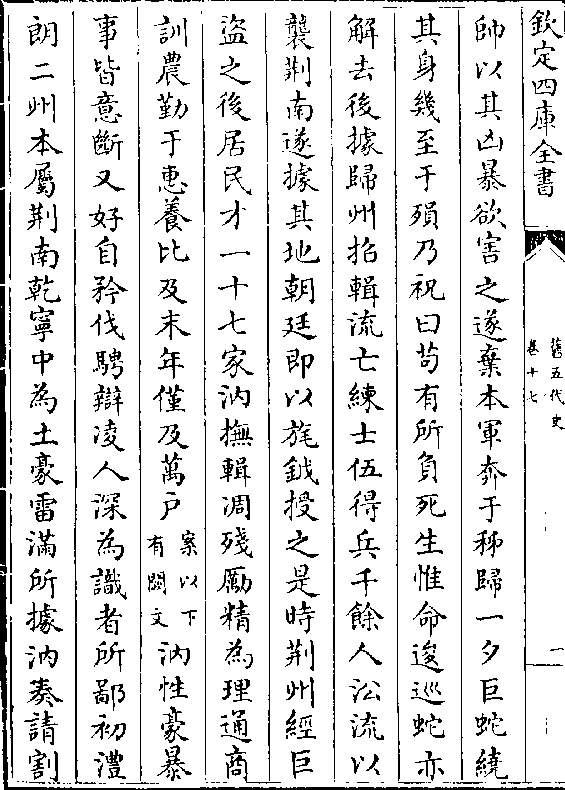 欽定四庫全書
舊五代史
卷十七
一
帥以其凶暴欲害之遂棄本軍奔于秭歸一夕巨蛇繞
其身幾至于殞乃祝曰苟有所負死生惟命逡巡蛇亦
解去後據歸州招輯流亡練士伍得兵千餘人沿流以
襲荆南遂據其地朝廷即以旄鉞授之是時荆州經巨
盜之後居民才一十七家汭撫輯凋殘勵精為理通商
訓農勤于惠養比及末年僅及萬户案以下有闕文汭性豪暴
事皆意斷又好自矜伐騁辯凌人深為識者所鄙初澧
朗二州本屬荆南乾寧中為土豪雷滿所據汭奏請割